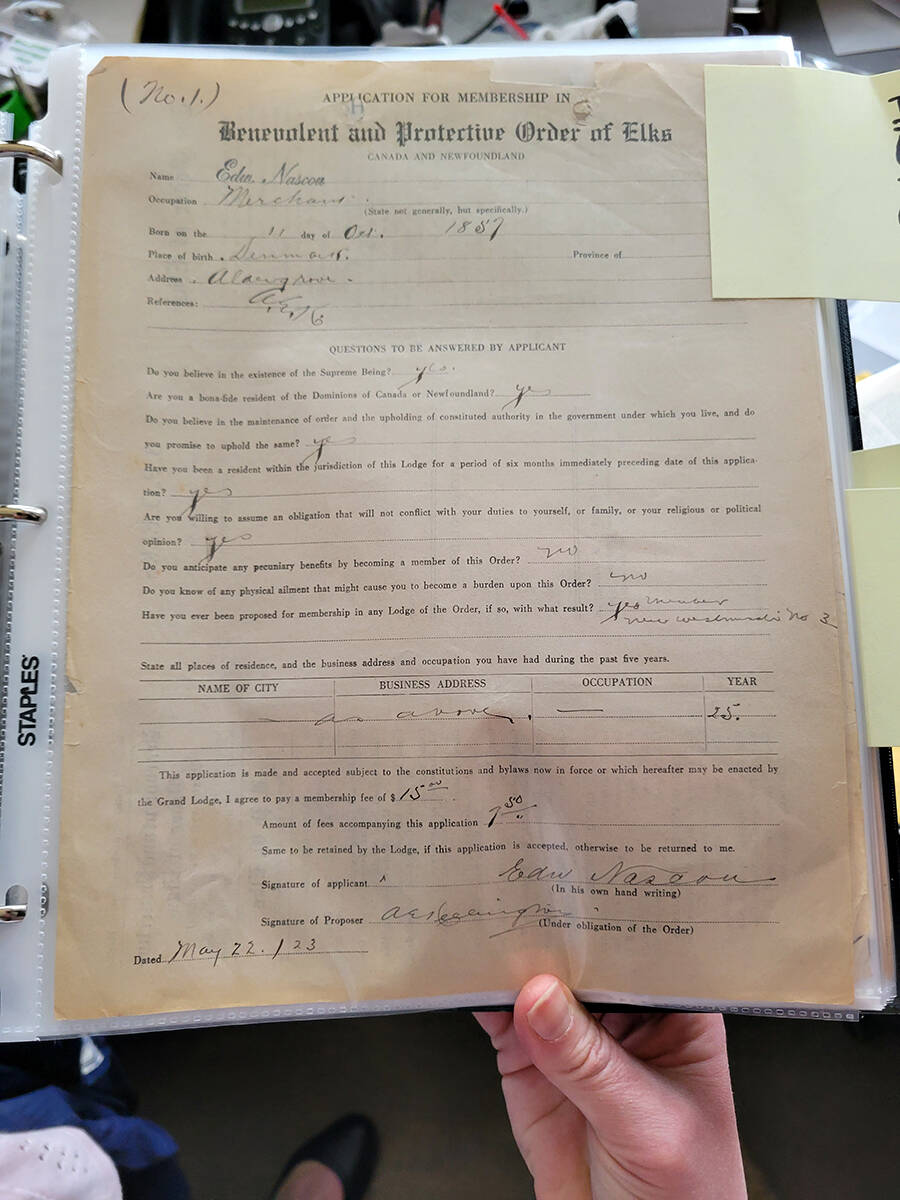 (No. 1.)
APPLICATION FOR MEMBERSHIP IN
Benevolent and Protective Order of Elks
CANADA AND NEWFOUNDLAND
Name Edw. Nascou
Occupation Merchant.
(State not generally, but specifically.)
Born on the 11 day of Oct. 1857
Place of birth. Denmark. Province of
Address. Aldergrove.
References:
QUESTIONS TO BE ANSWERED BY APPLICANT
Do you believe in the existence of the Supreme Being? yes.
Are you a bona-fide resident of the Dominions of Canada or Newfoundland? yes
Do you believe in the maintenance of order and the upholding of constituted authority in the government under which you live, and do
you promise to uphold the same? yes
Have you been a resident within the jurisdiction of this Lodge for a period of six months immediately preceding date of this applica-
tion? yes
Are you willing to assume an obligation that will not conflict with your duties to yourself, or family, or your religious or political
opinion? yes
Do you anticipate any pecuniary benefits by becoming a member of this Order? no
Do you know of any physical ailment that might cause you to become a burden upon this Order? no
Have you ever been proposed for membership in any Lodge of the Order, if so, with what result? yes member
New Westminster No 3
State all places of residence, and the business address and occupation you have had during the past five years.
NAME OF CITY BUSINESS ADDRESS OCCUPATION YEAR
— as above. — 25.
This application is made and accepted subject to the constitutions and bylaws now in force or which hereafter may be enacted by
the Grand Lodge, I agree to pay a membership fee of $ 15 00.
Amount of fees accompanying this application 7 50
Same to be retained by the Lodge, if this application is accepted, otherwise to be returned to me.
Signature of applicant Edw Nascou
(In his own hand writing)
Signature of Proposer
(Under obligation of the Order)
Dated May 22. / 23
STAPLES